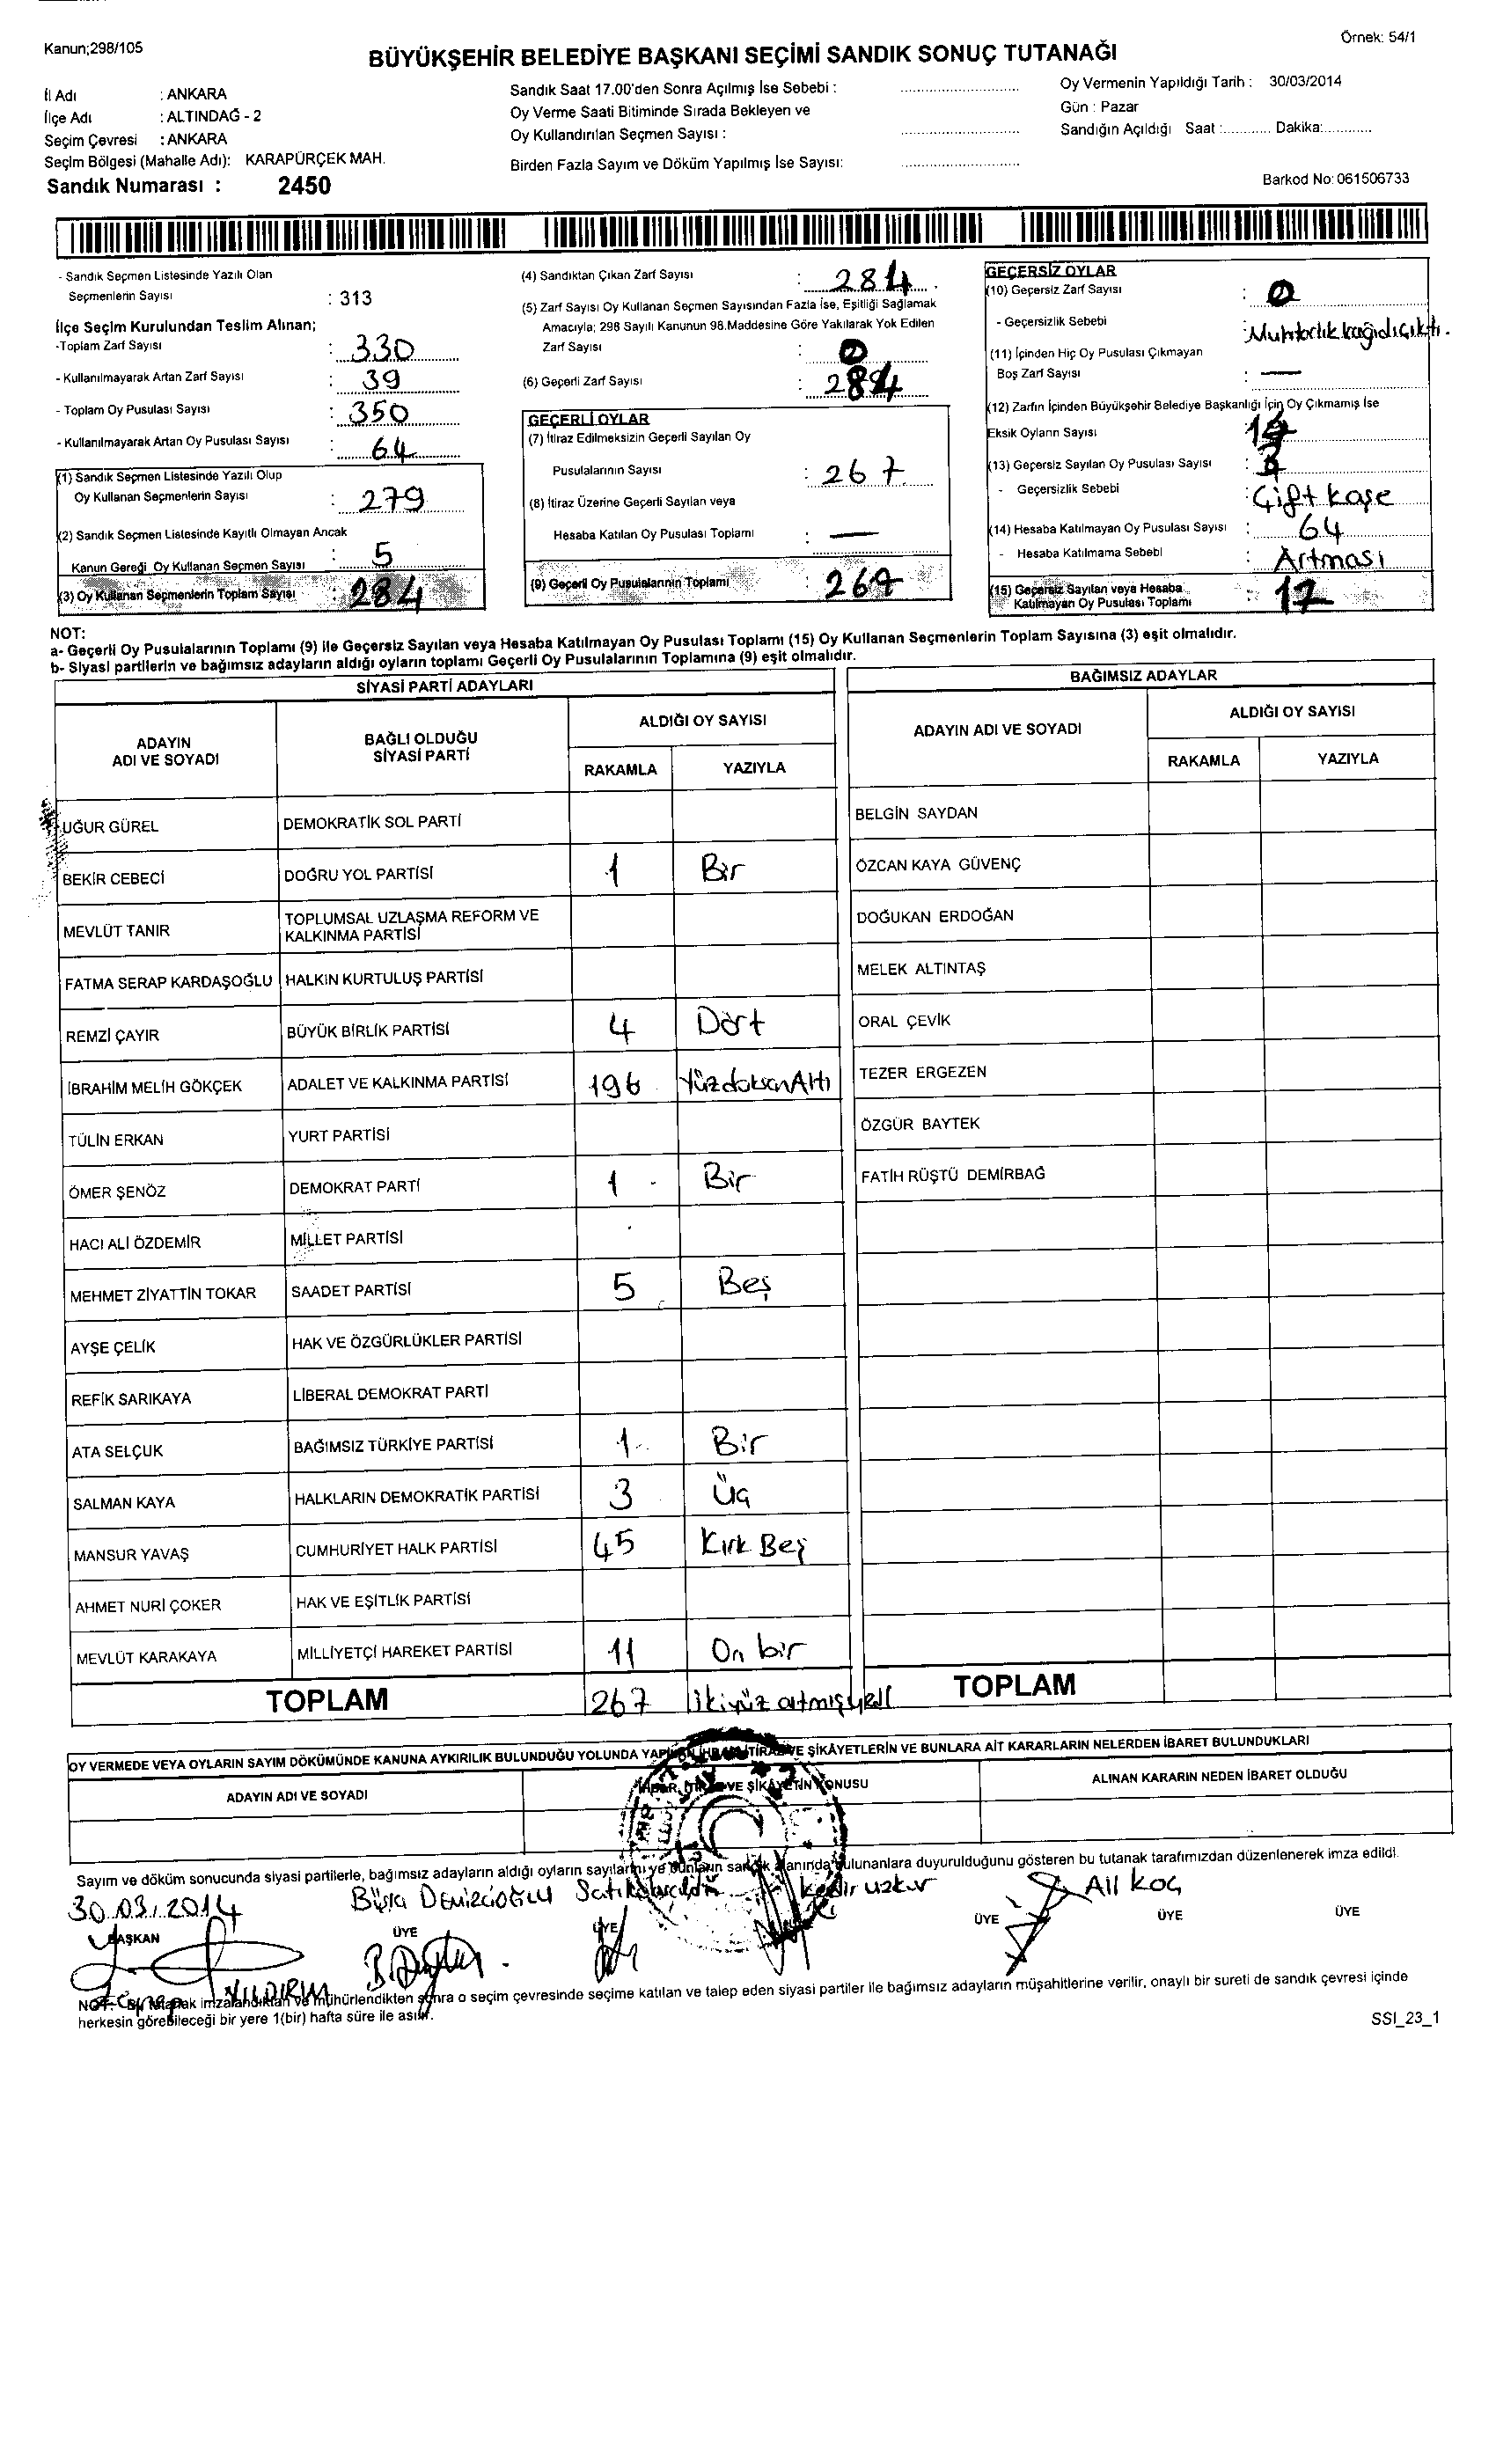 Kanun;298/105
Örnek: 54/1
BÜYÜKŞEHİR BELEDİYE BAŞKANI SEÇİMİ SANDIK SONUÇ TUTANAĞI
İl Adı : ANKARA
İlçe Adı : ALTINDAĞ - 2
Seçim Çevresi : ANKARA
Seçim Bölgesi (Mahalle Adı): KARAPÜRÇEK MAH.
Sandık Numarası : 2450
Sandık Saat 17.00'den Sonra Açılmış İse Sebebi :
Oy Verme Saati Bitiminde Sırada Bekleyen ve
Oy Kullandırılan Seçmen Sayısı :
Birden Fazla Sayım ve Döküm Yapılmış İse Sayısı:
Oy Vermenin Yapıldığı Tarih : 30/03/2014
Gün : Pazar
Sandığın Açıldığı Saat :............ Dakika:............
Barkod No: 061506733
- Sandık Seçmen Listesinde Yazılı Olan
Seçmenlerin Sayısı : 313
İlçe Seçim Kurulundan Teslim Alınan;
-Toplam Zarf Sayısı : 330
- Kullanılmayarak Artan Zarf Sayısı : 39
- Toplam Oy Pusulası Sayısı : 350
- Kullanılmayarak Artan Oy Pusulası Sayısı : 64
(1) Sandık Seçmen Listesinde Yazılı Olup
Oy Kullanan Seçmenlerin Sayısı : 279
(2) Sandık Seçmen Listesinde Kayıtlı Olmayan Ancak
Kanun Gereği Oy Kullanan Seçmen Sayısı : 5
(3) Oy Kullanan Seçmenlerin Toplam Sayısı : 284
(4) Sandıktan Çıkan Zarf Sayısı : 284
(5) Zarf Sayısı Oy Kullanan Seçmen Sayısından Fazla İse, Eşitliği Sağlamak
Amacıyla; 298 Sayılı Kanunun 98.Maddesine Göre Yakılarak Yok Edilen
Zarf Sayısı : 0
(6) Geçerli Zarf Sayısı : 284
GEÇERLİ OYLAR
(7) İtiraz Edilmeksizin Geçerli Sayılan Oy
Pusulalarının Sayısı : 267
(8) İtiraz Üzerine Geçerli Sayılan veya
Hesaba Katılan Oy Pusulası Toplamı : —
(9) Geçerli Oy Pusulalarının Toplamı : 267
GEÇERSİZ OYLAR
(10) Geçersiz Zarf Sayısı : 0
- Geçersizlik Sebebi : Muhtarlık kağıdı çıktı.
(11) İçinden Hiç Oy Pusulası Çıkmayan
Boş Zarf Sayısı : —
(12) Zarfın İçinden Büyükşehir Belediye Başkanlığı İçin Oy Çıkmamış İse
Eksik Oyların Sayısı :
(13) Geçersiz Sayılan Oy Pusulası Sayısı :
- Geçersizlik Sebebi : Çift kaşe
(14) Hesaba Katılmayan Oy Pusulası Sayısı : 64
- Hesaba Katılmama Sebebi : Artması
(15) Geçersiz Sayılan veya Hesaba
Katılmayan Oy Pusulası Toplamı : 17
NOT:
a- Geçerli Oy Pusulalarının Toplamı (9) ile Geçersiz Sayılan veya Hesaba Katılmayan Oy Pusulası Toplamı (15) Oy Kullanan Seçmenlerin Toplam Sayısına (3) eşit olmalıdır.
b- Siyasi partilerin ve bağımsız adayların aldığı oyların toplamı Geçerli Oy Pusulalarının Toplamına (9) eşit olmalıdır.
SİYASİ PARTİ ADAYLARI
ADAYIN ADI VE SOYADI
BAĞLI OLDUĞU SİYASİ PARTİ
ALDIĞI OY SAYISI
RAKAMLA YAZIYLA
UĞUR GÜREL DEMOKRATİK SOL PARTİ
BEKİR CEBECİ DOĞRU YOL PARTİSİ 1 Bir
MEVLÜT TANIR TOPLUMSAL UZLAŞMA REFORM VE KALKINMA PARTİSİ
FATMA SERAP KARDAŞOĞLU HALKIN KURTULUŞ PARTİSİ
REMZİ ÇAYIR BÜYÜK BİRLİK PARTİSİ 4 Dört
İBRAHİM MELİH GÖKÇEK ADALET VE KALKINMA PARTİSİ 196 Yüzdoksan Altı
TÜLİN ERKAN YURT PARTİSİ
ÖMER ŞENÖZ DEMOKRAT PARTİ 1 Bir
HACI ALİ ÖZDEMİR MİLLET PARTİSİ
MEHMET ZİYATTİN TOKAR SAADET PARTİSİ 5 Beş
AYŞE ÇELİK HAK VE ÖZGÜRLÜKLER PARTİSİ
REFİK SARIKAYA LİBERAL DEMOKRAT PARTİ
ATA SELÇUK BAĞIMSIZ TÜRKİYE PARTİSİ 1 Bir
SALMAN KAYA HALKLARIN DEMOKRATİK PARTİSİ 3 Üç
MANSUR YAVAŞ CUMHURİYET HALK PARTİSİ 45 Kırk Beş
AHMET NURİ ÇOKER HAK VE EŞİTLİK PARTİSİ
MEVLÜT KARAKAYA MİLLİYETÇİ HAREKET PARTİSİ 11 On bir
TOPLAM 267 İkiyüz atmışyedi
BAĞIMSIZ ADAYLAR
ADAYIN ADI VE SOYADI
ALDIĞI OY SAYISI
RAKAMLA YAZIYLA
BELGİN SAYDAN
ÖZCAN KAYA GÜVENÇ
DOĞUKAN ERDOĞAN
MELEK ALTINTAŞ
ORAL ÇEVİK
TEZER ERGEZEN
ÖZGÜR BAYTEK
FATİH RÜŞTÜ DEMİRBAĞ
TOPLAM
OY VERMEDE VEYA OYLARIN SAYIM DÖKÜMÜNDE KANUNA AYKIRILIK BULUNDUĞU YOLUNDA YAPILAN İHBAR, İTİRAZ VE ŞİKÂYETLERİN VE BUNLARA AİT KARARLARIN NELERDEN İBARET BULUNDUKLARI
ADAYIN ADI VE SOYADI
İHBAR, İTİRAZ VE ŞİKÂYETİN KONUSU
ALINAN KARARIN NEDEN İBARET OLDUĞU
Sayım ve döküm sonucunda siyasi partilerle, bağımsız adayların aldığı oyların sayılarını ve bunların sandık alanında bulunanlara duyurulduğunu gösteren bu tutanak tarafımızdan düzenlenerek imza edildi.
30.03.2014 Büşra Denizcioğlu Ali Koç
BAŞKAN ÜYE ÜYE ÜYE ÜYE ÜYE
Zeynep YILDIRIM
NOT: Bu tutanak imzalandıktan ve mühürlendikten sonra o seçim çevresinde seçime katılan ve talep eden siyasi partiler ile bağımsız adayların müşahitlerine verilir, onaylı bir sureti de sandık çevresi içinde
herkesin görebileceği bir yere 1(bir) hafta süre ile asılır.
SSI_23_1